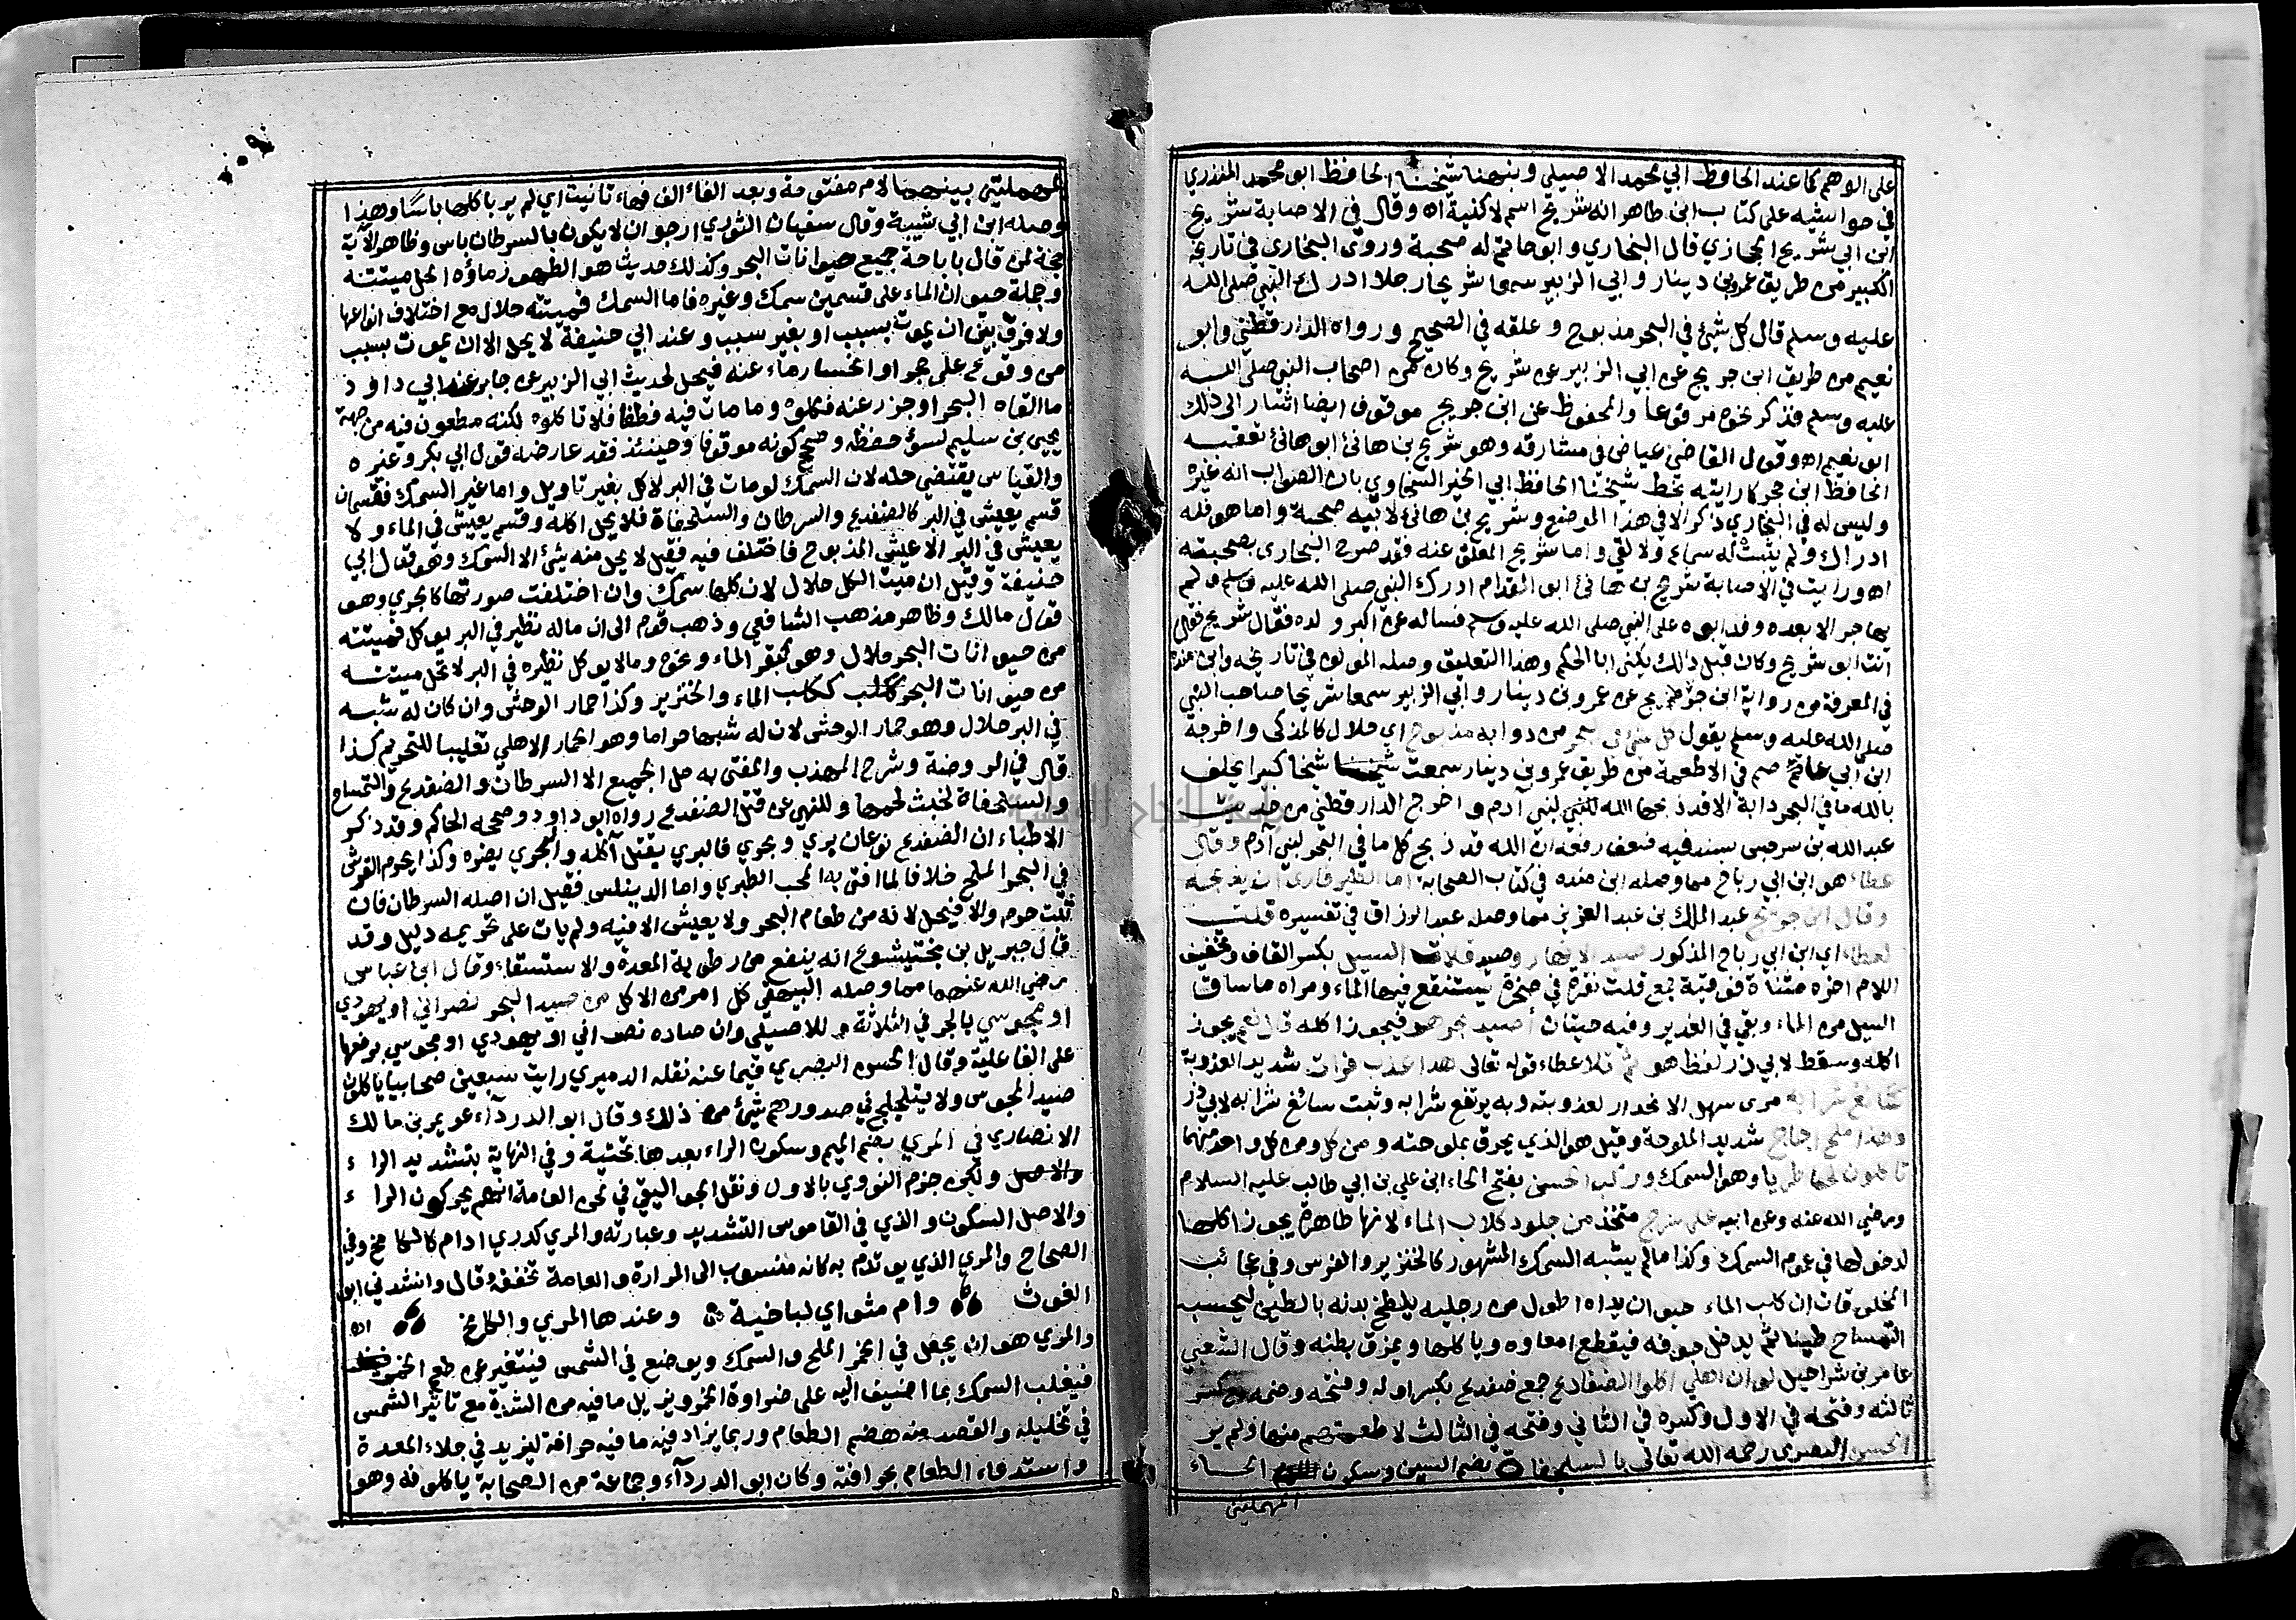 على الوهم كما عند الحافظ ابي محمد الاصيلي ونبهنا شيخنا الحافظ ابو محمد المنذري
في حواشيه على كتاب ابن طاهر انه شريح اسم لا كنية اه وقال في الاصابة شريح
ابن ابي شريح الحجازي قال البخاري وابو حاتم له صحبة وروى البخاري في تاريخه
الكبير من طريق عمرو بن دينار وابي الزبير سمعا شريحا رجلا ادرك النبي صلى الله
عليه وسلم قال كل شيئ في البحر مذبوح وعلقه في الصحيح ورواه الدارقطني وابو
نعيم من طريق ابن جريج عن ابي الزبير عن شريح وكان من اصحاب النبي صلى الله
عليه وسلم فذكر نحوه مرفوعا والمحفوظ عن ابن جريج موقوف ايضا اشار الى ذلك
ابو نعيم اه وقول القاضي عياض في مشارقه وهو شريح بن هانئ ابو هانئ تعقبه
الحافظ ابن حجر كما رايته بخط شيخنا الحافظ ابي الخير السخاوي بان الصواب انه غيره
وليس له في البخاري ذكر الا في هذا الموضع وشريح بن هانئ لابيه صحبة واما هو فله
ادراك ولم يثبت له سماع ولا لقي واما شريح المعلق عنه فقد صرح البخارى بصحبته
اه ورايت في الاصابة شريح بن هانئ ابو المقدام ادرك النبي صلى الله عليه وسلم ولم
يهاجر الا بعده وفد ابوه على النبي صلى الله عليه وسلم فساله عن اكبر ولده فقال شريح فقال
انت ابو شريح وكان قبل ذلك يكنى ابا الحكم وهذا التعليق وصله المولف في تاريخه وابن منده
في المعرفة من رواية ابن جريج عن عمرو بن دينار وابي الزبير سمعا شريحا صاحب النبي
صلى الله عليه وسلم يقول كل شئ في البحر من دوابه مذبوح اي حلال كالمذكى واخرجه
ابن ابي عاصم في الاطعمة من طريق عمرو بن دينار سمعت شيخا كبيرا يحلف
بالله ما في البحر دابة الا قد ذبحها الله لبني آدم واخرج الدارقطني من حديث
عبد الله بن سرجس بسند فيه ضعف رفعه ان الله قد ذبح كل ما في البحر لبني آدم وقال
عطاء هو ابن ابي رباح مما وصله ابن منده في كتاب الصحابة اما الطير فارى ان يذبحه
وقال ابن جريج عبد الملك بن عبد العزيز مما وصله عبد الرزاق في تفسيره قلت
لعطاء اي ابن ابي رباح المذكور صيد الانهار وصيد قلات السيل بكسر القاف وتخفيف
اللام اخره مثناة فوقية جمع قلت نقرة في صخرة يستنقع فيها الماء ومراه ما ساق
السيل من الماء وبقي في الغدير وفيه حيتان أصيد بحر هو فيجوز اكله قال نعم يجوز
اكله وسقط لابي ذر لفظ هو ثم تلا عطاء قوله تعالى هذا عذب فرات شديد العذوبة
سائغ شرابه مري سهل الانحدار لعذوبته وبه يرتفع شرابه وثبت سائغ شرابه لابي ذر
وهذا ملح اجاج شديد الملوحة وقيل هو الذي يحرق بملوحته ومن كل ومن كل واحد منهما
تاكلون لحما طريا وهو السمك وركب الحسن بفتح الحاء ابن علي بن ابي طالب عليه السلام
ورضي الله عنه وعن ابيه على سرج متخذ من جلود كلاب الماء لانها طاهرة يجوز اكلها
لدخولها في عموم السمك وكذا ما لم يشبه السمك المشهور كالخنزير والفرس وفي عجائب
المخلوقات ان كلب الماء حيوان يداه اطول من رجليه يلطخ بدنه بالطين ليحسبه
التمساح طينا ثم يدخل جوفه فيقطع امعاوه وياكلها ويمزق بطنه وقال الشعبي
عامر بن شراحيل لو ان اهلي اكلوا الضفادع جمع ضفدع بكسر اوله وفتحه وضمه مع كسر
ثالثه وفتحه في الاول وكسره في الثاني وفتحه في الثالث لاطعمتهم منها ولم ير
الحسن البصرى رحمه الله تعالى بالسلحفاة بضم السين وسكون الحاء
المهملتين
المهملتين بينهما لام مفتوحة وبعد الفاء الف فهاء تانيث اي لم ير باكلها باسًا وهذا
وصله ابن ابي شيبة وقال سفيان الثوري ارجو ان لا يكون بالسرطان باس وظاهر الآية
حجة لمن قال باباحة جميع حيوانات البحر وكذلك حديث هو الطهور ماؤه الحل ميتته
وجملة حيوان الماء على قسمين سمك وغيره فاما السمك فميتته حلال مع اختلاف انواعها
ولا فرق بين ان يموت بسبب او بغير سبب وعند ابي حنيفة لا يحل الا ان يموت بسبب
من وقوع على حجر او انحسار ماء عنه فيحل لحديث ابي الزبير عن جابر عند ابي داود
ما القاه البحر او جزر عنه فكلوه وما مات فيه فطفا فلا تاكلوه لكنه مطعون فيه من جهة
يحيى بن سليم لسوء حفظه وصحح كونه موقوفا وحينئذ فقد عارضه قول ابي بكر وغيره
والقياس يقتضي حله لان السمك لو مات في البر لاكل بغير تاويل واما غير السمك فقسمان
قسم يعيش في البر كالضفدع والسرطان والسلحفاة فلا يحل اكله وقسم يعيش في الماء ولا
يعيش في البر الا عيش المذبوح فاختلف فيه فقيل لا يحل منه شئ الا السمك وهو قول ابي
حنيفة وقيل ان ميت الكل حلال لان كلها سمك وان اختلفت صورتها كالجري وهو
قول مالك وظاهر مذهب الشافعي وذهب قوم الى ان ماله نظير في البر يوكل فميتته
من حيوانات البحر حلال وهو كبقر الماء ونحوه وما لا يوكل نظيره في البر لا تحل ميتته
من حيوانات البحر ككلب الماء والخنزير وكذا حمار الوحش وان كان له شبه
في البر حلال وهو حمار الوحش لان له شبها حراما وهو الحمار الاهلي تغليبا للتحريم كذا
قال في الروضة وشرح المهذب والمفتى به حل الجميع الا السرطان والضفدع والتمساح
والسلحفاة لخبث لحمها وللنهي عن قتل الضفدع رواه ابو داود وصححه الحاكم وقد ذكر
الاطباء ان الضفدع نوعان بري وبحري فالبري يقتل آكله والبحري يضره وكذا يحرم القرش
في البحر الملح خلافا لما افتى به المحب الطبري واما الدنيلس فقيل ان اصله السرطان فان
ثبت حرم والا فيحل لانه من طعام البحر ولا يعيش الا فيه ولم يات على تحريمه دليل وقد
قال جبريل بن بختيشوع انه ينفع من رطوبة المعدة والاستسقاء وقال ابن عباس
رضي الله عنهما مما وصله البيهقي كل امر من الاكل من صيد البحر نصراني او يهودي
او مجوسي بالجر في الثلاثة وللاصيلي وان صاده نصراني او يهودي او مجوسي برفعها
على الفاعلية وقال الحسن البصري فيما عنه نقله الدميري رايت سبعين صحابيا ياكلون
صيد المجوس ولا يتلجلج في صدورهم شئ من ذلك وقال ابو الدرداء عويمر بن مالك
الانصاري في المري بضم الميم وسكون الراء بعدها تحتية وفي النهاية بتشديد الراء
ولكن جزم النووي بالاول ونقل الجواليقي في لحن العامة انهم يحركون الراء
والاصل السكون والذي في القاموس التشديد وعبارته والمري كدري ادام كالكامخ وفي
الصحاح والمري الذي يوتدم به كانه منسوب الى المرارة والعامة تخففه قال وانشدني ابو
الغوث وام مثواي لباخية وعندها المري والكامخ اه
والمري هو ان يجعل في الخمر الملح والسمك ويوضع في الشمس فيتغير عن طعم الخمر
فيغلب السمك بما اضيف اليه على ضراوة الخمر ويزيل ما فيه من الشدة مع تاثير الشمس
في تخليله والقصد منه هضم الطعام وربما يزاد فيه ما فيه حرافة ليزيد في جلاء المعدة
واستدعاء الطعام بحرافته وكان ابو الدرداء وجماعة من الصحابة ياكلونه وهو